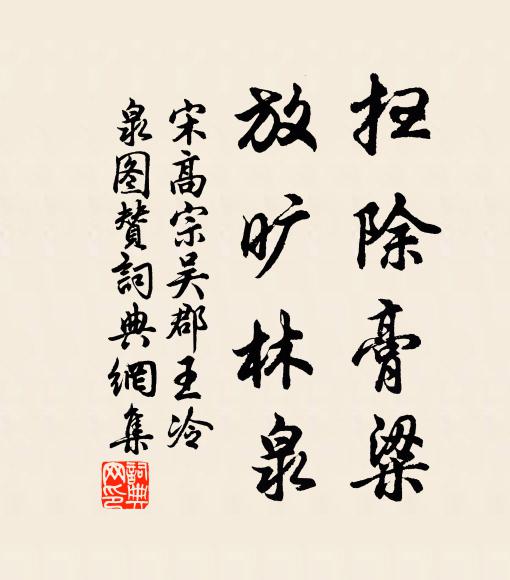 扫除膏粱
放旷林泉
宋高宗吴郡王冷
泉图赞詞典網集
詞典
网印